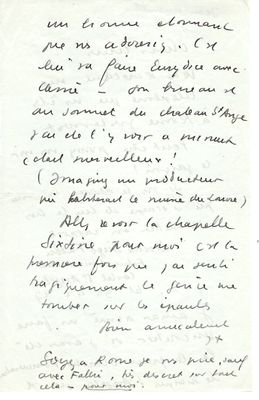 un homme etonnant
que vs adorerez. C'est
lui va faire Eurydice avec
- son bureau est
au sommet du chateau St Ange
j'ai de l'y voir a minuit
c'etait merveilleux !
( Imaginez un producteur
qui habiterait le musée du Louvre )
Allez revoir la chapelle
Sixtine pour moi c'est la
première fois que j'ai senti
tragiquement le génie me
tomber sur les épaules
Bien amicalement
a Rome je vs prie, sauf
avec très discret sur tout
cela - pour moi.